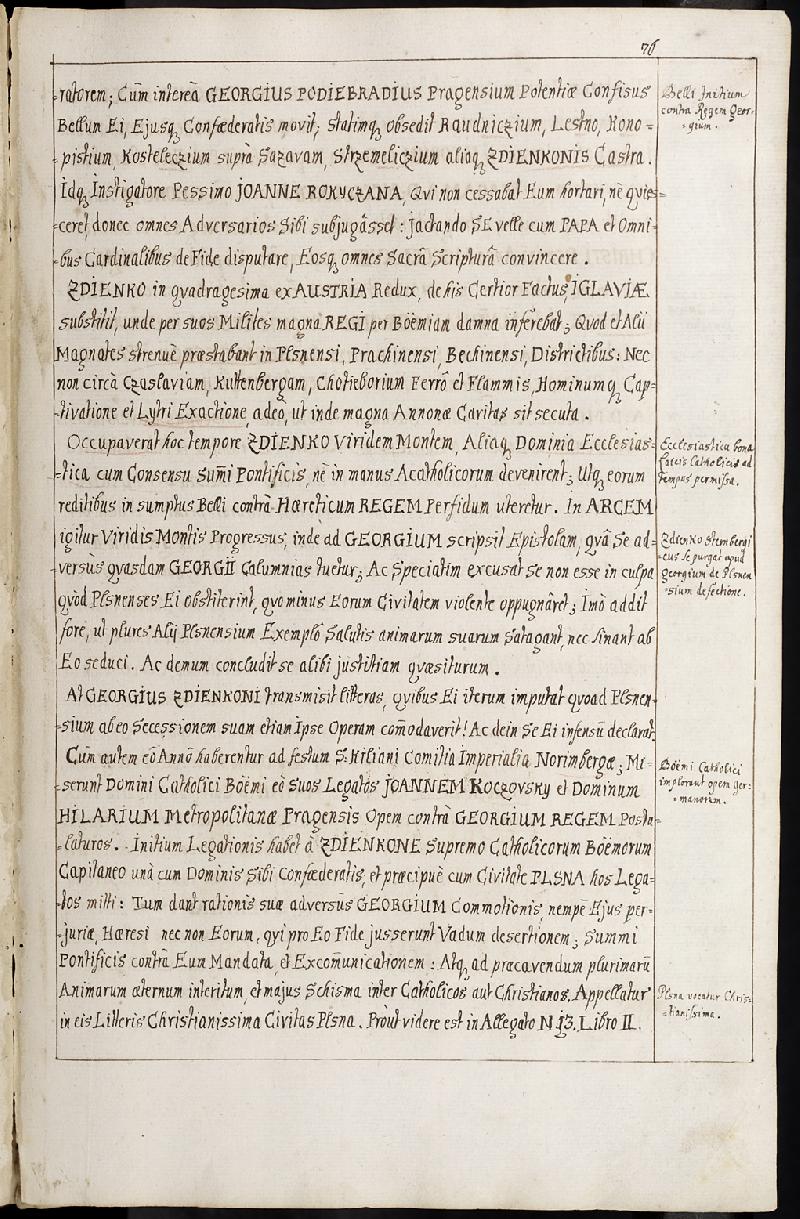 76
-ratorem; Cùm intereà GEORGIUS PODIEBRADIUS Pragensium Potentiæ Confisus
Bellum Ei, Ejusq; Confæderatis movit; statimq; obsedit Raudniczium, Lestno, Kono=
pistium, Kosteleczium suprà Sazavam, Strzemeliczium aliaq; ZDIENKONIS Castra.
Idq; Instigatore Pessimo JOANNE ROKYCZANA, Qvi non cessabat Eum hortari, nè qvies=
ceret, donec omnes Adversarios Sibi subjugâsset: jactando SE velle cum PAPA et Omni
-bus Cardinalibus de Fide disputare, Eosq; omnes Sacrâ Scripturâ convincere.
ZDIENKO in qvadragesima ex AUSTRIA Redux, de his Certior Factus, IGLAVIÆ
substitit, unde per suos Milites magna REGI per Böemiam damna inferebat; Qvod et Alii
Magnates strenuè præstabant in Plsnensi, Prachinensi, Bechinensi, Districtibus: Nec
non circà Czaslaviam, Kuttenbergam, Chotieborium Ferrô et Flammis, Hominumq; Cap=
-tivatione et Lytri Exactione, adeo, ut inde magna Annonæ Caritas sit secuta.
Occupaverat hoc tempore ZDIENKO Viridem Montem, Aliaq; Dominia Ecclesias=
-tica cum Consensu Sum̃i Pontificis, nè in manus Acatholicorum devenirent; Utq; eorum
reditibus in sumptus Belli contrà Hæreticum REGEM Perfidum uteretur. In ARCEM
igitur Viridis Montis Progressus, inde ad GEORGIUM scripsit Epistolam, qvâ Se ad=
-versùs qvasdam GEORGII Calumnias tuetur; Ac Speciatim excusat se non esse in culpa
qvòd Plsnenses Ei obstiterint, qvominus Eorum Civitatem violente oppugnâret; Imò addit
fore, ut plures Alij Plsnensium Exemplô Salutis animarum suarum Satagant, nec sinant ab
Eo seduci. Ac demum concludit se alibi justitiam qvæsiturum.
At GEORGIUS ZDIENKONI transmisit litteras, qvibus Ei iterum imputat qvoad Plsnen=
-sium ab eo Secessionem suam etiam Ipse Operam com̃odaverit! Ac dein Se Ei infensũ declarat.
Cùm autem eô Annô haberentur ad festum S: Kiliani Comitia Imperialia Norimbergæ; Mi=
-serunt Domini Catholici Böëmi eò Suos Legatos JOANNEM Koczovsky et Dominum
HILARIUM Metropolitanæ Pragensis Opem contrà GEORGIUM REGEM Postu=
-laturos. Initium Legationis habet à ZDIENKONE Supremo Catholicorum Böëmorum
Capitaneo unà cum Dominis Sibi Confæderatis, et præcipuè cum Civitate PLSNA hos Lega=
tos mitti: Tum dant rationis suæ adversùs GEORGIUM Commotionis, nempè Ejus per=
-juriæ, Hæresi nec non Eorum, qvi pro Eo Fide jusserunt Vadum desertionem; Summi
Pontificis contrà Eum Mandata, et Excom̃unicationem: Atq; ad præcavendum plurimarũ
Animarum æternum interitum, et majus Schisma inter Catholicos aut Christianos. Appellatur
in eis Litteris Christianissima Civitas Plsna. Proùt videre est in Allegato N 13. Libro II.
Belli Initium
contra Regem Geor=
-gium.
Ecclesiastica bona
laicis Catholicis ad
tempus permissa.
Zdienko Stembergi
cus se purgat apud
Georgium de Plsnen
sium defectione.
Böëmi Catholici
implorant opem Ger=
manorum.
Plsna vocatur Chris=
-tianissima.